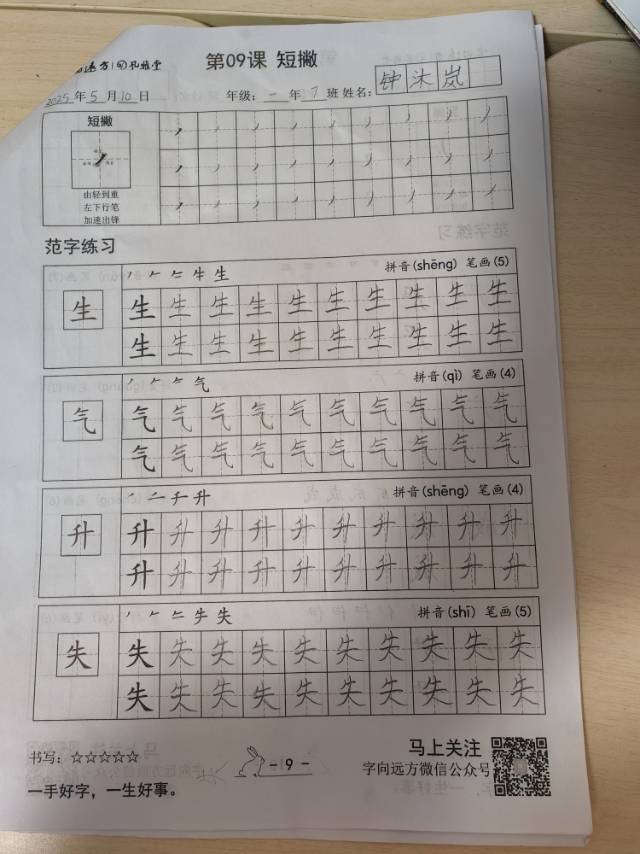 远方 礼雅堂
第09课 短撇
2025年5月10日 年级：一年7班 姓名：钟沐岚
短撇
由轻到重
左下行笔
加速出锋
范字练习
生 拼音(shēng) 笔画(5)
生 生 生 生 生 生 生 生 生 生 生
生 生 生 生 生 生 生 生 生 生
气 拼音(qì) 笔画(4)
气 气 气 气 气 气 气 气 气 气 气
气 气 气 气 气 气 气 气 气 气
升 拼音(shēng) 笔画(4)
升 升 升 升 升 升 升 升 升 升 升
升 升 升 升 升 升 升 升 升 升
失 拼音(shī) 笔画(5)
失 失 失 失 失 失 失 失 失 失 失
失 失 失 失 失 失 失 失 失 失
书写：☆☆☆☆☆
- 9 -
马上关注
字向远方微信公众号
一手好字，一生好事。